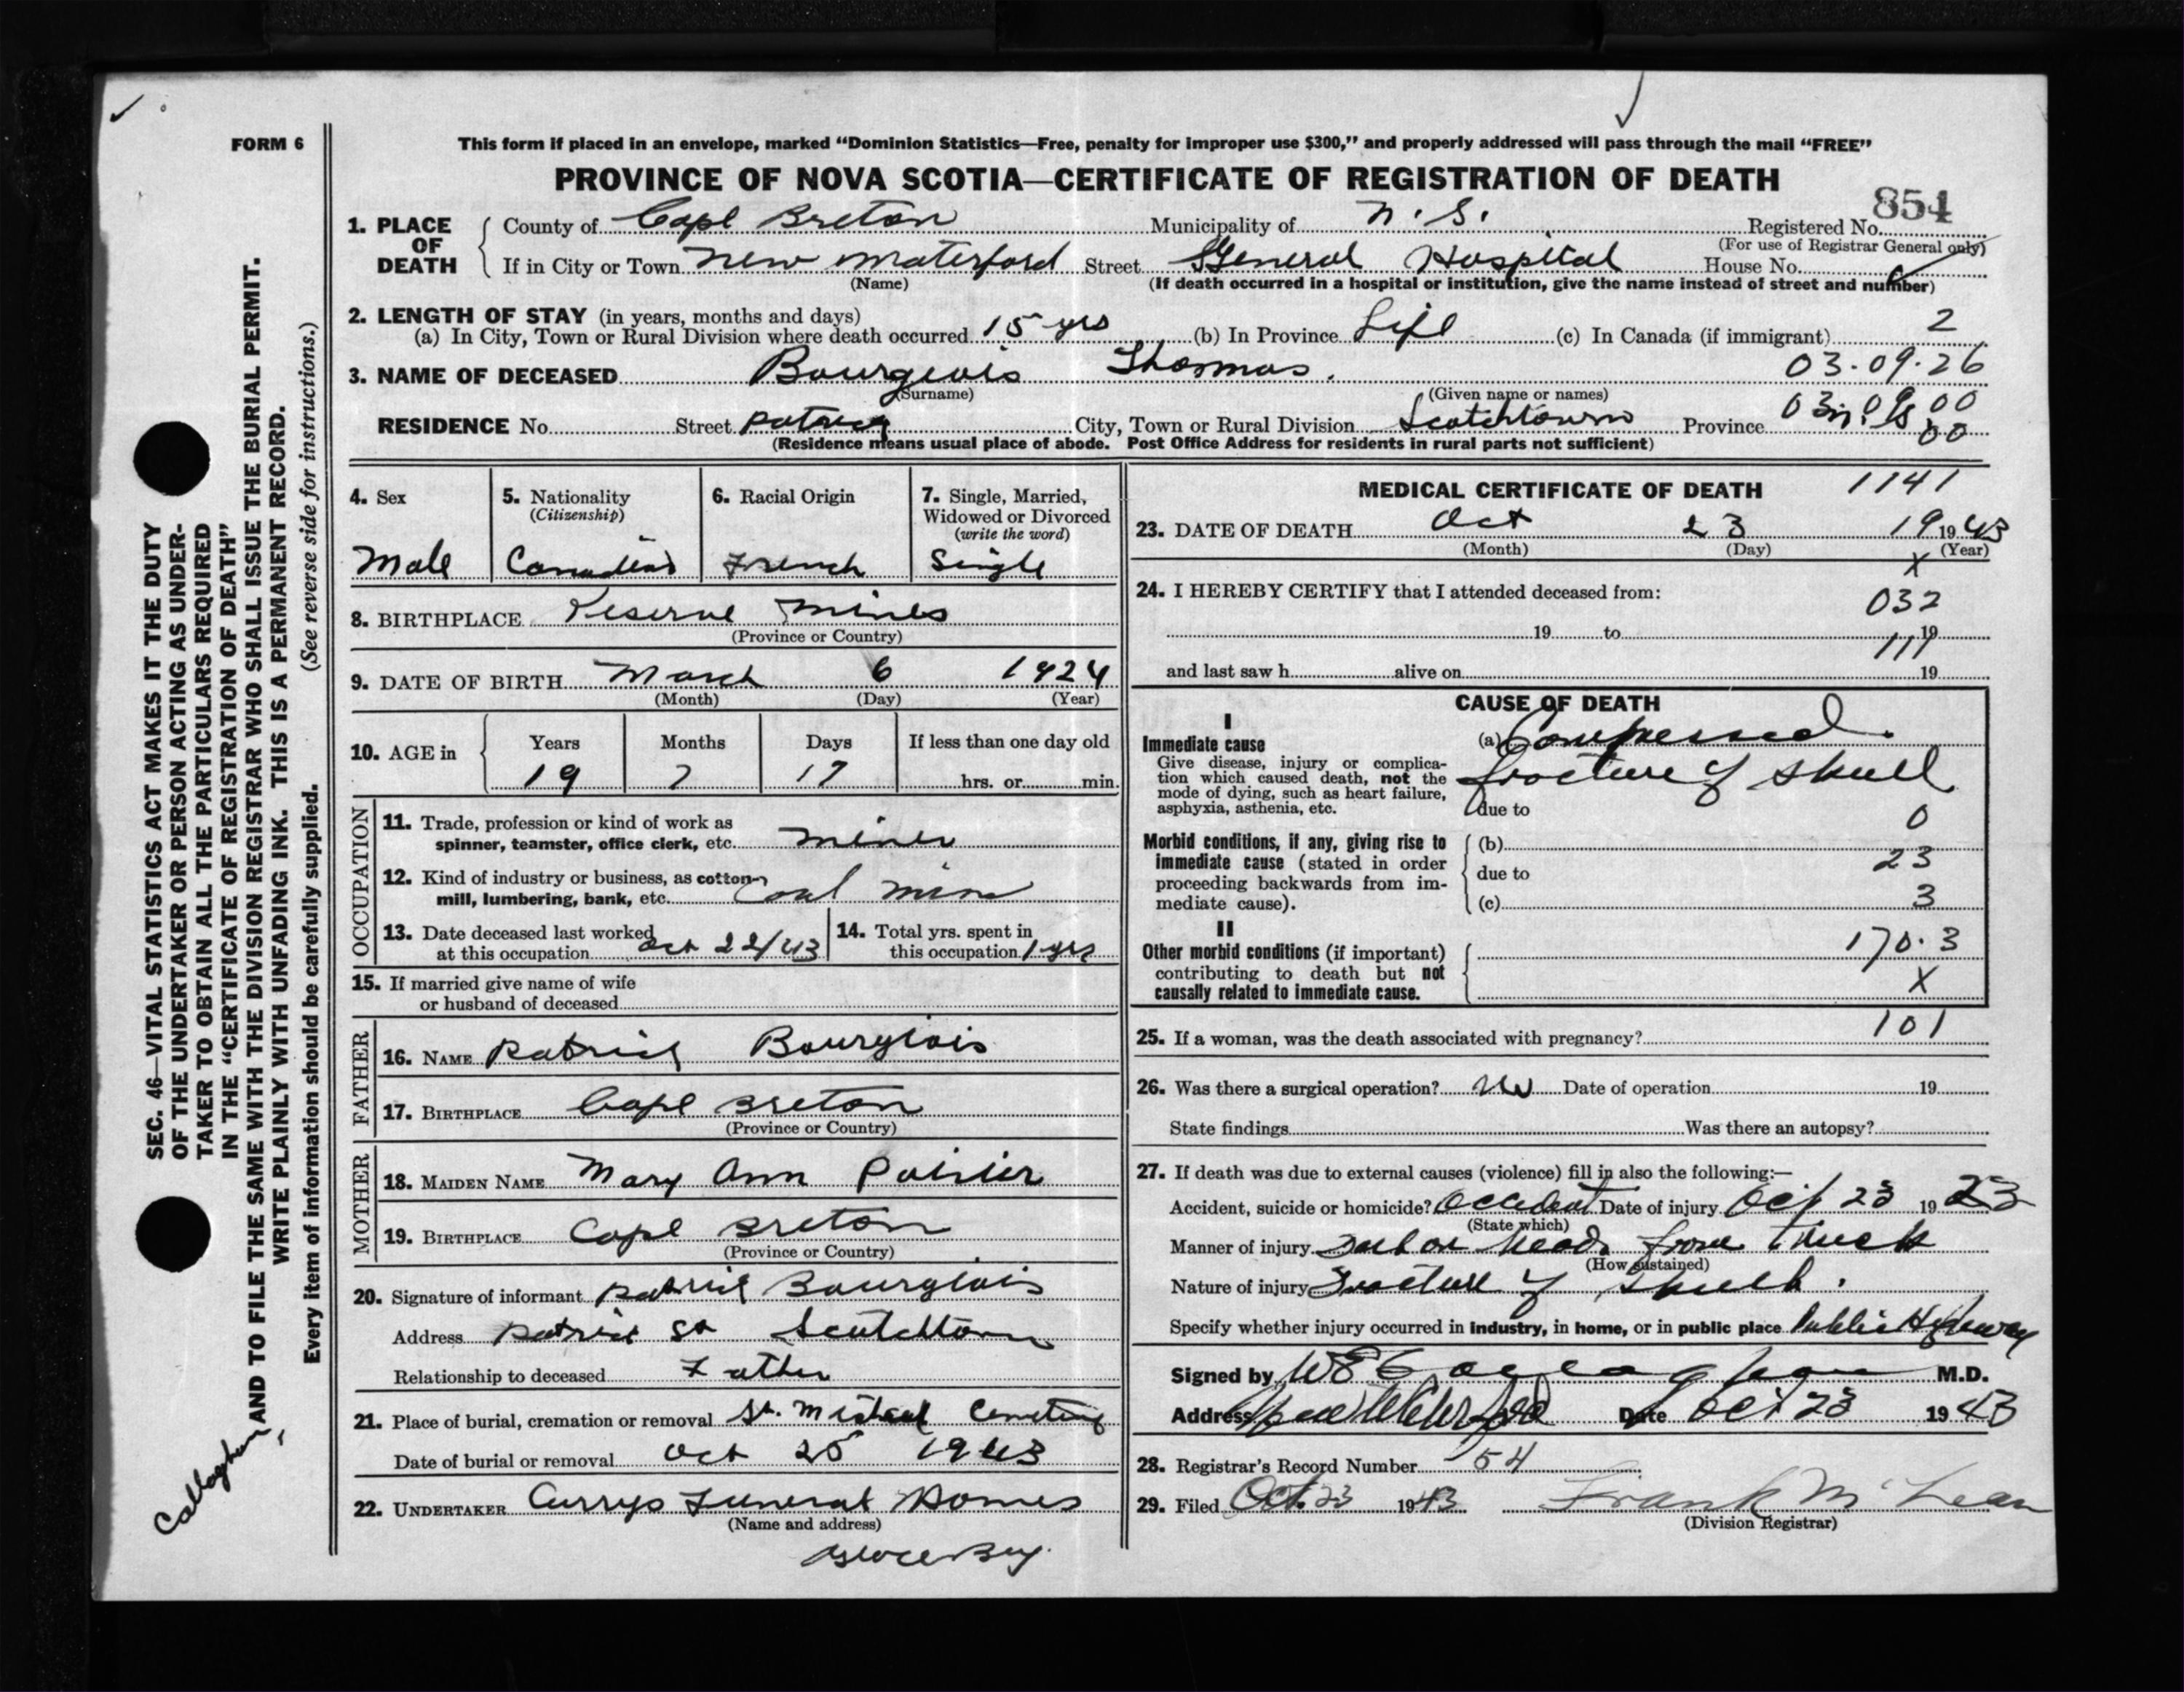 FORM 6
This form if placed in an envelope, marked “Dominion Statistics—Free, penalty for improper use $300,” and properly addressed will pass through the mail “FREE”
PROVINCE OF NOVA SCOTIA—CERTIFICATE OF REGISTRATION OF DEATH
854
1. PLACE OF DEATH County of Cape Breton Municipality of N. S. Registered No.
(For use of Registrar General only)
If in City or Town New Waterford Street General Hospital House No.
(Name) (If death occurred in a hospital or institution, give the name instead of street and number)
2. LENGTH OF STAY (in years, months and days)
(a) In City, Town or Rural Division where death occurred 15 yrs (b) In Province Life (c) In Canada (if immigrant) 2
3. NAME OF DECEASED Bourgeois Thomas. 03.09.26
(Surname) (Given name or names)
03.09.00
RESIDENCE No. Street Patrick City, Town or Rural Division Scotchtown Province N. S 00
(Residence means usual place of abode. Post Office Address for residents in rural parts not sufficient)
4. Sex 5. Nationality (Citizenship) 6. Racial Origin 7. Single, Married, Widowed or Divorced (write the word)
Male Canadian French Single
8. BIRTHPLACE Reserve Mines
(Province or Country)
9. DATE OF BIRTH March 6 1924
(Month) (Day) (Year)
10. AGE in Years Months Days If less than one day old
19 7 17 hrs. or min.
OCCUPATION
11. Trade, profession or kind of work as spinner, teamster, office clerk, etc. Miner
12. Kind of industry or business, as cotton-mill, lumbering, bank, etc. Coal mine
13. Date deceased last worked at this occupation Oct 22/43 14. Total yrs. spent in this occupation 1 yrs
15. If married give name of wife or husband of deceased
FATHER
16. NAME Patrick Bourgeois
17. BIRTHPLACE Cape Breton
(Province or Country)
MOTHER
18. MAIDEN NAME Mary Ann Poirier
19. BIRTHPLACE Cape Breton
(Province or Country)
20. Signature of informant Patrick Bourgeois
Address Patrick St Scotchtown
Relationship to deceased Father
21. Place of burial, cremation or removal St. Michael Cemetery
Date of burial or removal Oct 25 1943
22. UNDERTAKER Currys Funeral Homes
(Name and address)
Glace Bay.
MEDICAL CERTIFICATE OF DEATH 1141
23. DATE OF DEATH Oct 23 19 19 43
(Month) (Day) (Year)
X
24. I HEREBY CERTIFY that I attended deceased from:
032
19 to 19
111
and last saw h alive on 19
CAUSE OF DEATH
I
Immediate cause (a) Compressed.
Give disease, injury or complication which caused death, not the mode of dying, such as heart failure, asphyxia, asthenia, etc.
fracture of skull
due to
0
Morbid conditions, if any, giving rise to immediate cause (stated in order proceeding backwards from immediate cause).
(b)
23
due to
(c) 3
II
Other morbid conditions (if important) contributing to death but not causally related to immediate cause.
170.3
X
101
25. If a woman, was the death associated with pregnancy?
26. Was there a surgical operation? No Date of operation 19
State findings Was there an autopsy?
27. If death was due to external causes (violence) fill in also the following:—
Accident, suicide or homicide? Accident Date of injury Oct 23 19 23
(State which)
Manner of injury on head from truck
(How sustained)
Nature of injury Fracture of skull.
Specify whether injury occurred in industry, in home, or in public place Public Highway
Signed by W E Callaghan M.D.
Address New Waterford Date Oct 23 19 43
28. Registrar's Record Number 54
29. Filed Oct. 23 1943 Frank McLean
(Division Registrar)
SEC. 46—VITAL STATISTICS ACT MAKES IT THE DUTY
OF THE UNDERTAKER OR PERSON ACTING AS UNDER-
TAKER TO OBTAIN ALL THE PARTICULARS REQUIRED
IN THE “CERTIFICATE OF REGISTRATION OF DEATH”
AND TO FILE THE SAME WITH THE DIVISION REGISTRAR WHO SHALL ISSUE THE BURIAL PERMIT.
WRITE PLAINLY WITH UNFADING INK. THIS IS A PERMANENT RECORD.
Every item of information should be carefully supplied. (See reverse side for instructions.)
Callaghan